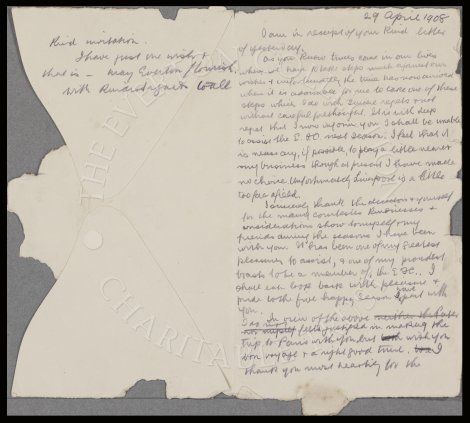 29 April 1908
I am in receipt of your kind letter
of yesterday.
As you know times came in our lives
when we have to take steps much against our
wishes & unfortunately the time has now arrived
when it is advisable for me to take one of those
steps which I do with sincere regrets & not
without careful forethought. It is with deep
regret that I now inform you I shall be unable
to assist the E.F.C. next season. I feel that it
is necessary, if possible, to play a little nearer
my business though at present I have made
no choice. Unfortunately Liverpool is a little
too far afield.
I sincerely thank the directors & yourself
for the many courtesies kindnesses &
considerations shown to myself & my
friends during the seasons I have been
with you. It has been one of my greatest
pleasures to assist, & one of my proudest
boasts to be a member of, the E.F.C. I
shall ever look back with pleasure &
pride to the five happy seasons I have spent with
you.
In view of the above
felt justified in making the
trip to Paris with you but wish you
bon voyage & a right good time. I
thank you most heartily for the
kind invitation.
I have just one wish &
that is - may Everton flourish
with kindest regards to all
THE EVE
CHARITA